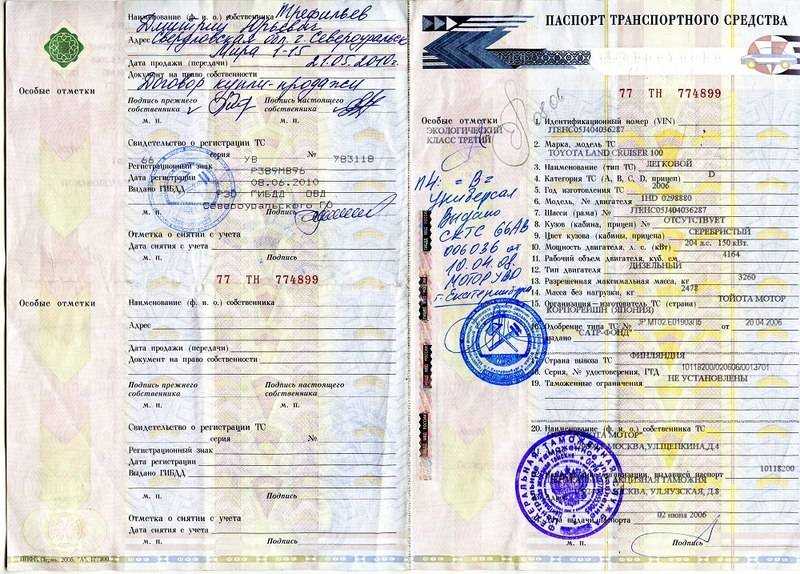 Особые отметки
Наименование (ф. и. о.) собственника Трефильев
Дмитрий Юрьевич
Адрес Свердловская обл. г. Североуральск
Мира 1-15
Дата продажи (передачи) 21.05.2010г.
Документ на право собственности
Договор купли-продажи
Подпись прежнего собственника
Подпись настоящего собственника
М. П. М. П.
Свидетельство о регистрации ТС
66 серия УВ № 783118
Регистрационный знак Р389МВ96
Дата регистрации 08.06.2010
Выдано ГИБДД РЭО ГИБДД ОВД
Североуральского ГО
М. П. Подпись
Отметка о снятии с учета
Дата снятия с учета
М. П. Подпись
77 ТН 774899
Особые отметки
Наименование (ф. и. о.) собственника
Адрес
Дата продажи (передачи)
Документ на право собственности
Подпись прежнего собственника
Подпись настоящего собственника
М. П. М. П.
Свидетельство о регистрации ТС
серия №
Регистрационный знак
Дата регистрации
Выдано ГИБДД
М. П. Подпись
Отметка о снятии с учета
Дата снятия с учета
М. П. Подпись
ПАСПОРТ ТРАНСПОРТНОГО СРЕДСТВА
77 ТН 774899
Особые отметки
ЭКОЛОГИЧЕСКИЙ
КЛАСС ТРЕТИЙ
П4: = В =
Универсал
Выдано
СРТС 66АВ
006036 от
10.04.08.
г. Екатеринбург
1. Идентификационный номер (VIN)
JTEHC05J404036287
2. Марка, модель ТС
TOYOTA LAND CRUISER 100
3. Наименование (тип ТС) ЛЕГКОВОЙ
4. Категория ТС (А, В, С, D, прицеп) D
5. Год изготовления ТС 2006
6. Модель, № двигателя 1HD 0298880
7. Шасси (рама) № JTEHC05J404036287
8. Кузов (кабина, прицеп) № ОТСУТСТВУЕТ
9. Цвет кузова (кабины, прицепа) СЕРЕБРИСТЫЙ
10. Мощность двигателя, л. с. (кВт) 204 л.с. 150 квт.
11. Рабочий объем двигателя, куб. см 4164
12. Тип двигателя ДИЗЕЛЬНЫЙ
13. Разрешенная максимальная масса, кг 3260
14. Масса без нагрузки, кг 2478
15. Организация—изготовитель ТС (страна) ТОЙОТА МОТОР
КОРПОРЕЙШН (ЯПОНИЯ)
16. Одобрение типа ТС № JP.MT02.E01903П5 от 20.04.2006
выдано "САТР-ФОНД"
17. Страна вывоза ТС ФИНЛЯНДИЯ
18. Серия, № удостоверения, ГТД 10118200/020606/0013701
19. Таможенные ограничения НЕ УСТАНОВЛЕНЫ
20. Наименование (ф. и. о.) собственника ТС
МОТОР"
МОСКВА, УЛ.ЩЕПКИНА, Д.4
организации, выдавшей паспорт 10118200
АКЦИЗНАЯ ТАМОЖНЯ
МОСКВА, УЛ.ЯУЗСКАЯ, Д.8
Дата выдачи паспорта 02 июня 2006
М. П. Подпись
ФЕДЕРАЛЬНАЯ ТАМОЖЕННАЯ СЛУЖБА